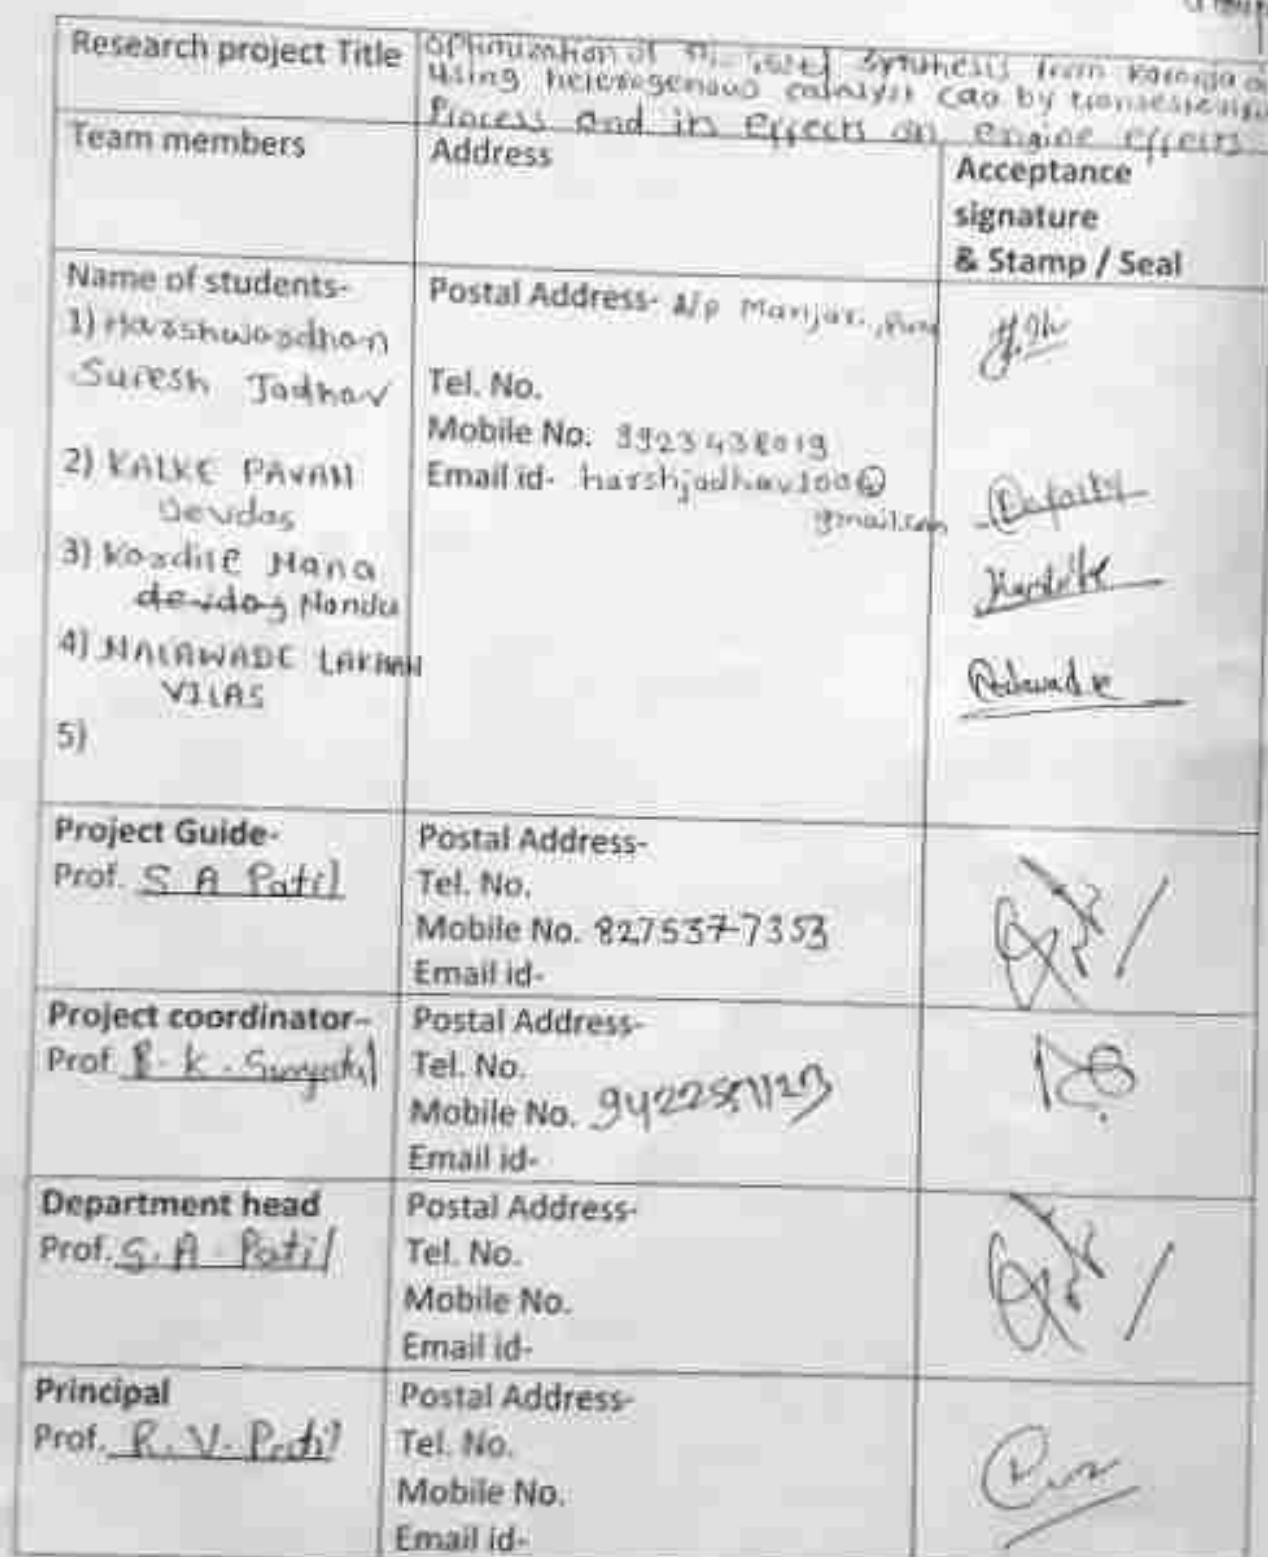 Research project Title
Optimization of synthesis from karanja
Using heterogenous catalyst cao by
Process and its effects on engine effects
Team members
Address
Acceptance
signature
& Stamp / Seal
Name of students-
1) Harshwardhan
Suresh Jadhav
2) KALKE PAVAN
Devdas
3) Kardile Nana
devidas Nandu
4) NALAWADE LAKHAN
VILAS
5)
Postal Address- A/p Manjari, Pune
Tel. No.
Mobile No. 9923438019
Email id- harshjadhav100@
gmail.com
Project Guide-
Prof. S A Patil
Postal Address-
Tel. No.
Mobile No. 8275377353
Email id-
Project coordinator-
Prof B. K.
Postal Address-
Tel. No.
Mobile No.
Email id-
Department head
Prof. S. A. Patil
Postal Address-
Tel. No.
Mobile No.
Email id-
Principal
Prof. R. V. Patil
Postal Address-
Tel. No.
Mobile No.
Email id-